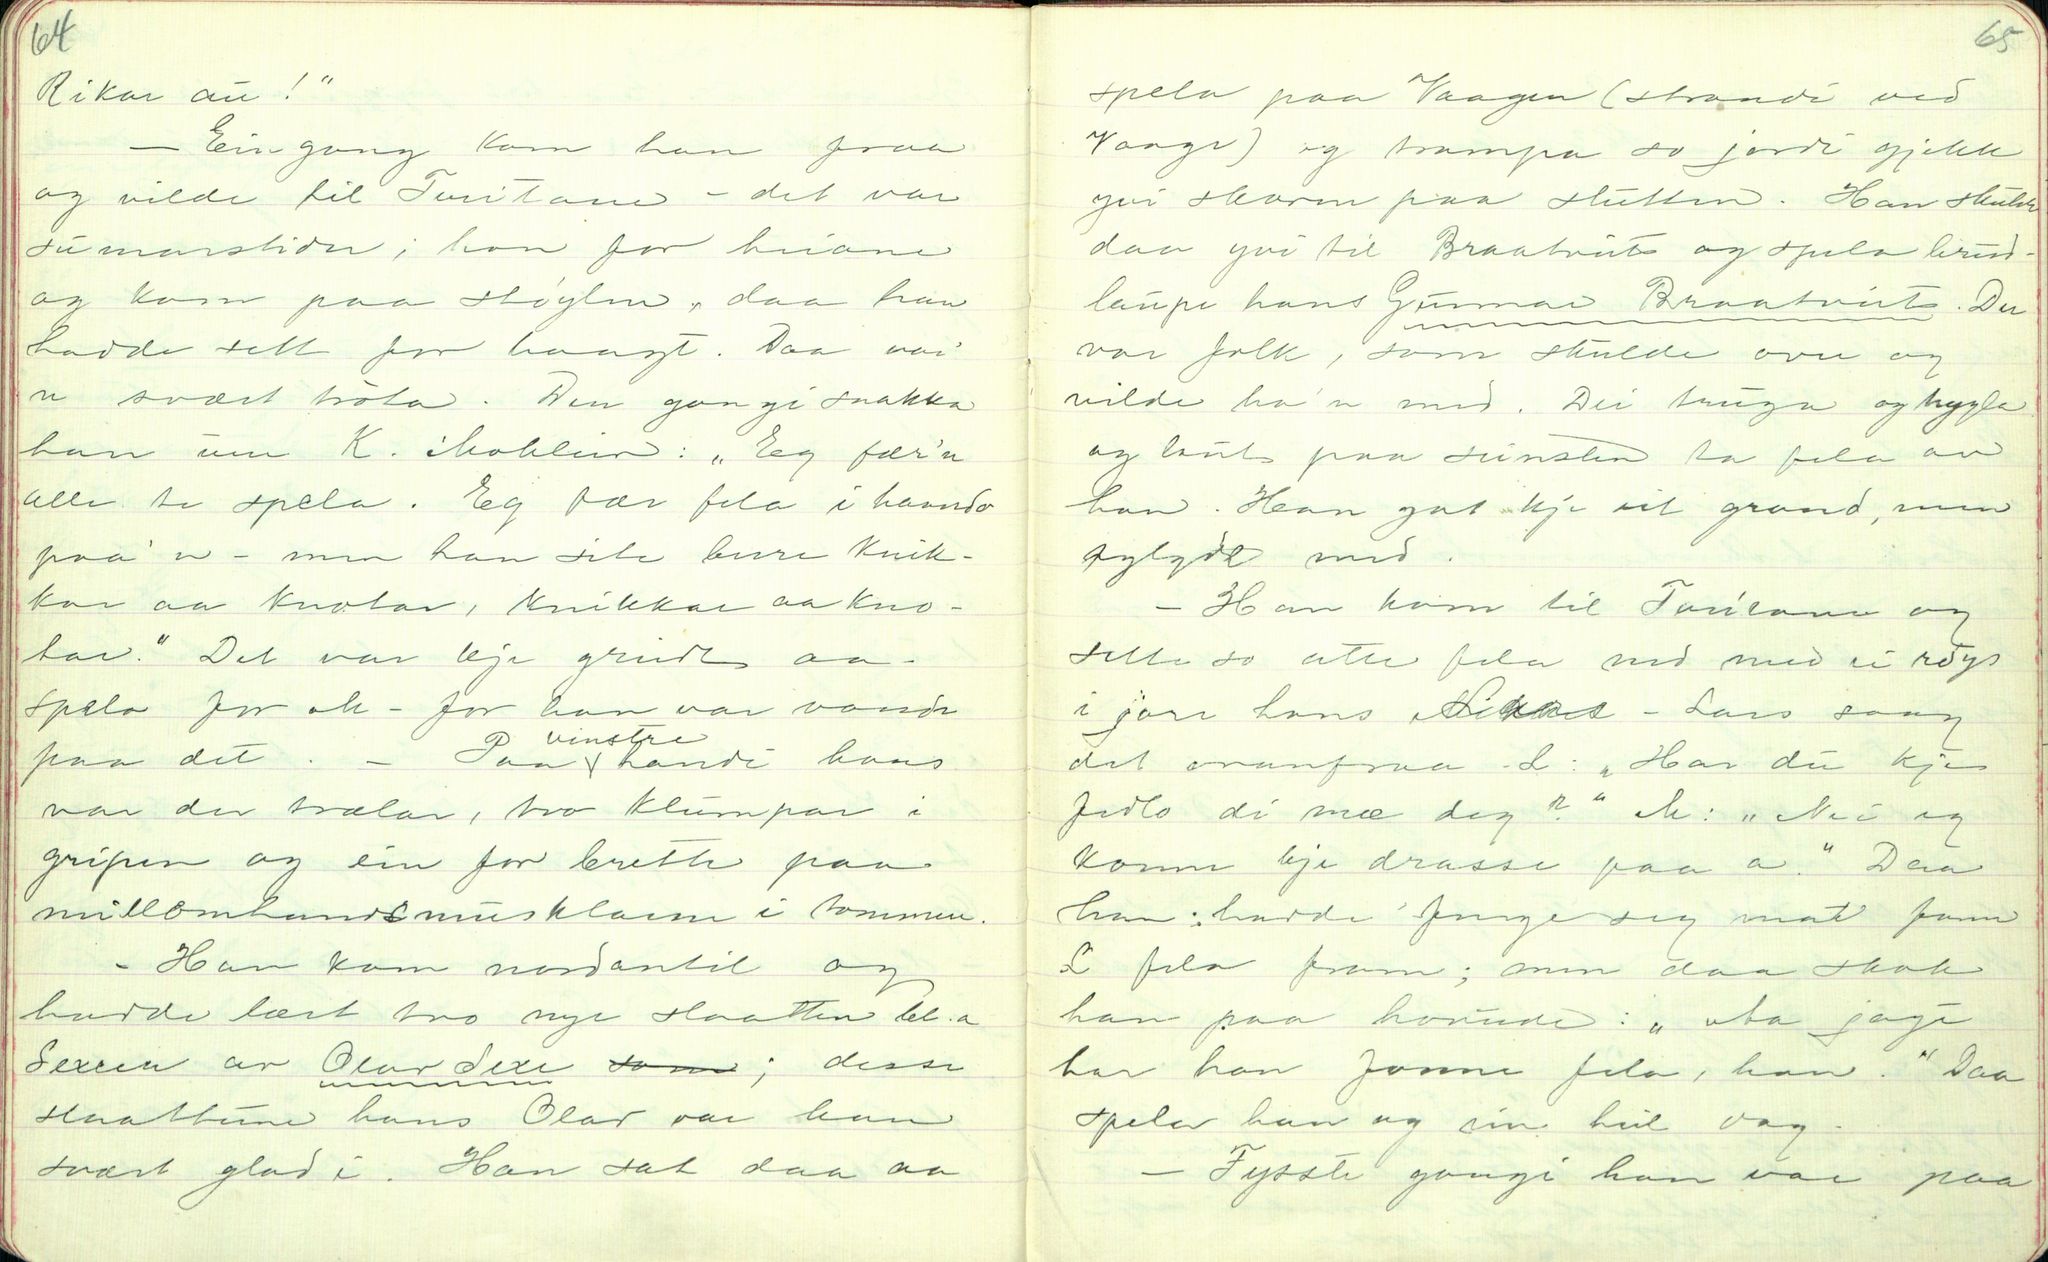 64
Rikar au!"
— Ein gong kom han fraa
og vilde til Turitane – det var
sumarstider; han for heiane
og kom paa støylen, daa han
hadde sett for haagt. Daa var
'n svært trøta. Den gongi snakka
han um K. : "Eg fær'n
alle te spela. Eg fær fela i haando
paa 'n – men han site bere knik-
kar aa knotar, knikkar aa kno-
tar." Det var kje greidt aa
spela for M – for han var vande
paa det. – Paa vinstre handi hans
var der trælar, tvo klumpar i
gripen og ein for brette paa
millomhandsmusklarne i tommen.
– Han kom nordantil og
hadde lært tvo nye slaatter bl.a
Sexen av Olav Sexe som; desse
slaattene hans Olav var han
svært glad i. Han sat daa aa
65
spela paa Vaagen (strandi ved
Vaage) og trampa so jordi gjekk
yvi skorne paa slutten. Han skulde
daa yvi til Braatveit og spela brud-
laupe hans Gunnar Braatveit. Der
var folk, som skulde over og
vilde ha'n med. Dei truga og hygla
og laut paa seinsten ta fela av
han. Han gat kje eit grand, men
fylgde med.
– Han kom til Turitane og
sette so atte fela ned med ei røys
i jore hans – Lars saag
det ovanfraa. L: "Har du kje
fedlo di mæ deg?" M: "Nei eg
komm kje drasse paa a." Daa
han hadde fenge seg mat fann
L fela fram; men daa skok
han paa hovude: "
har han fonne fela, han." Daa
spela han og ein heil dag.
– Fysste gongi han var paa